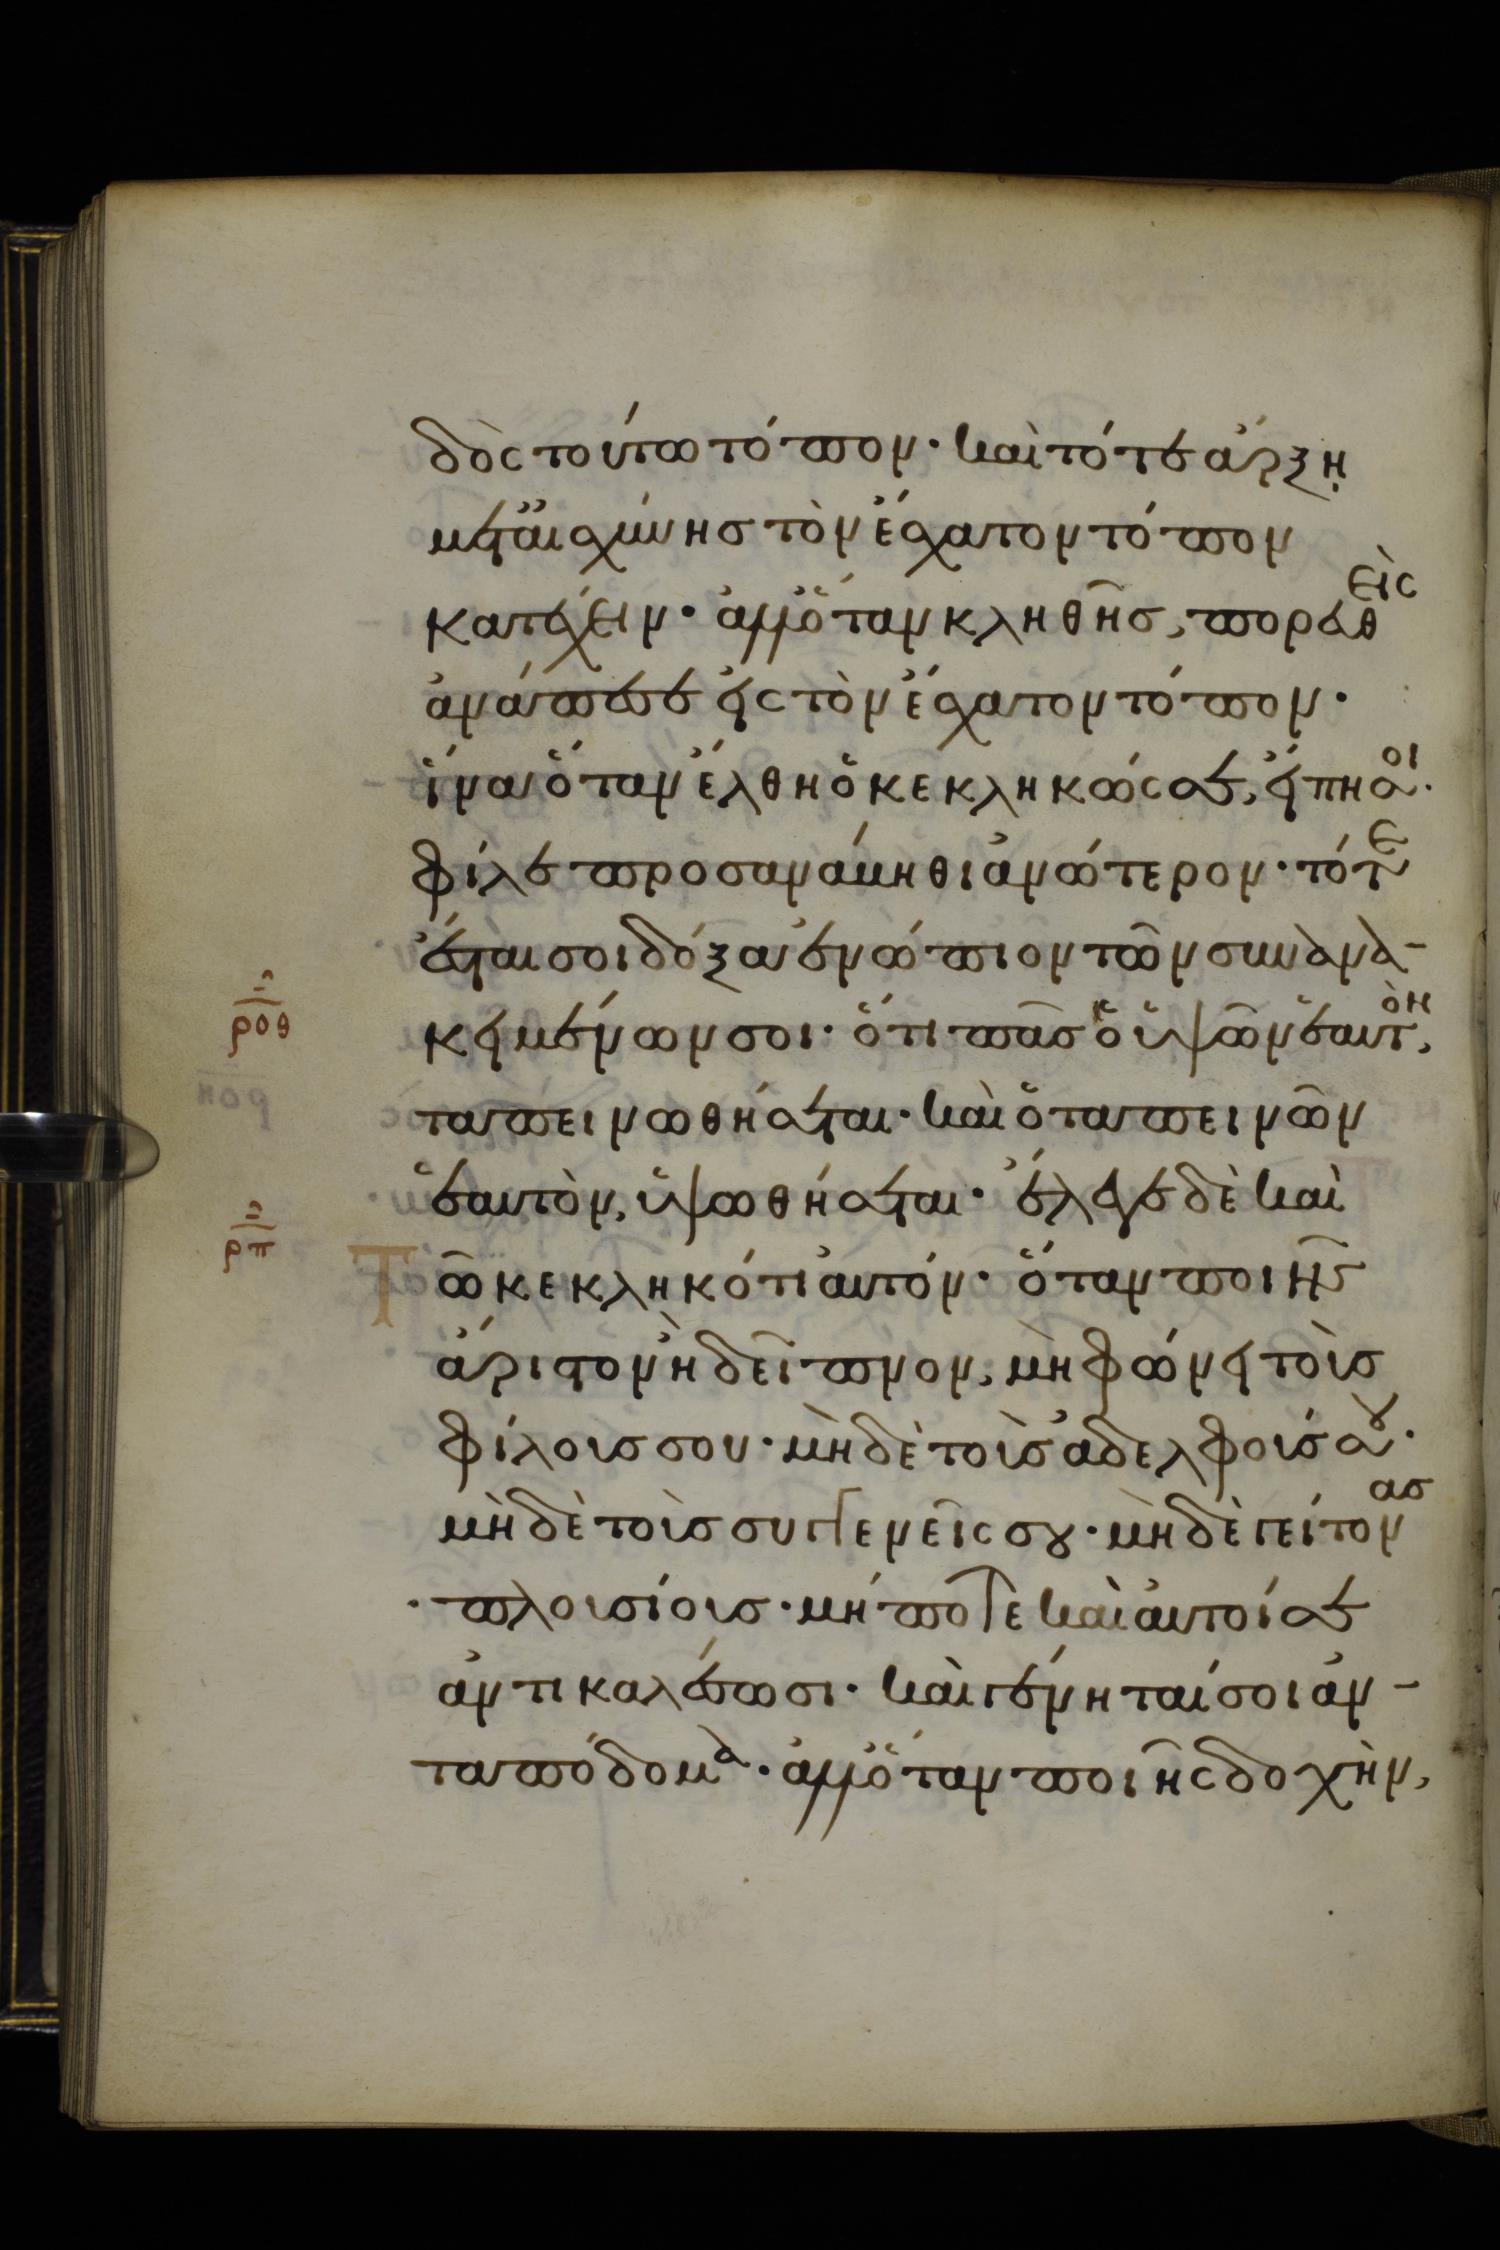 δὸς τούτω τόπον· καὶ τότε ἄρξῃ
μεταἰσχύνης τὸν ἔσχατον τόπον
κατέχειν· ἀλλ' ὅταν κληθῆς, πορευθεὶς
ἀνάπεσε εἰς τὸν ἔσχατον τόπον·
ἵνα ὅταν ἔλθη ὁ κεκληκώς σε, εἴπη σοι·
φίλε προσανάβηθι ἀνώτερον· τότε
ἔσται σοι δόξα ἐνώπιον τῶν συνανα-
κειμένων σοι· ὅτι πᾶς ὁ ὑψῶν ἑαυτὸν,
ροθ
ταπεινωθήσεται· καὶ ὁ ταπεινῶν
ἑαυτὸν, ὑψωθήσεται· ἔλεγε δὲ καὶ
ρπ
Τῶ κεκληκότι αὐτόν· ὅταν ποιῆς
ἄριστον ἢ δεῖπνον, μὴ φώνει τοὺς
φίλους σου· μὴδὲ τοὺς ἀδελφούς σου·
μὴδὲ τοὺς συγγενεῖς σου· μὴδὲ γείτονας
πλουσίους· μήποτε καὶ αὐτοί σε
ἀντικαλέσωσι· καὶ γένηταί σοι ἀν-
ταπόδομα· ἀλλ' ὅταν ποιῆς δοχὴν,